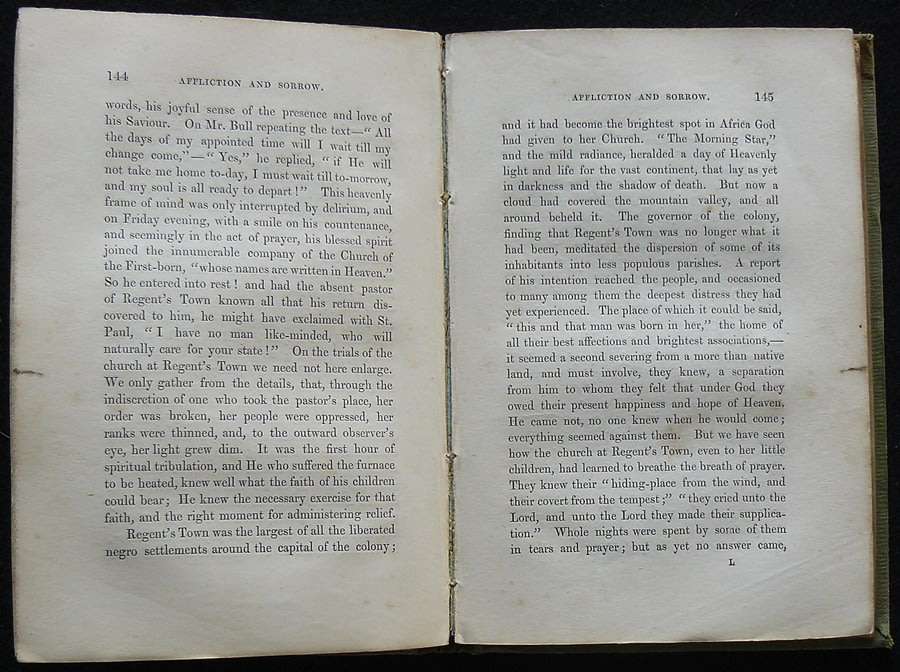 144
AFFLICTION AND SORROW.
words, his joyful sense of the presence and love of
his Saviour. On Mr. Bull repeating the text—“ All
the days of my appointed time will I wait till my
change come,”—“ Yes,” he replied, “ if He will
not take me home to-day, I must wait till to-morrow,
and my soul is all ready to depart!” This heavenly
frame of mind was only interrupted by delirium, and
on Friday evening, with a smile on his countenance,
and seemingly in the act of prayer, his blessed spirit
joined the innumerable company of the Church of
the First-born, “whose names are written in Heaven.”
So he entered into rest! and had the absent pastor
of Regent's Town known all that his return dis-
covered to him, he might have exclaimed with St.
Paul, “ I have no man like-minded, who will
naturally care for your state!” On the trials of the
church at Regent's Town we need not here enlarge.
We only gather from the details, that, through the
indiscretion of one who took the pastor's place, her
order was broken, her people were oppressed, her
ranks were thinned, and, to the outward observer's
eye, her light grew dim. It was the first hour of
spiritual tribulation, and He who suffered the furnace
to be heated, knew well what the faith of his children
could bear; He knew the necessary exercise for that
faith, and the right moment for administering relief.
Regent's Town was the largest of all the liberated
negro settlements around the capital of the colony;
AFFLICTION AND SORROW.
145
and it had become the brightest spot in Africa God
had given to her Church. “The Morning Star,”
and the mild radiance, heralded a day of Heavenly
light and life for the vast continent, that lay as yet
in darkness and the shadow of death. But now a
cloud had covered the mountain valley, and all
around beheld it. The governor of the colony,
finding that Regent's Town was no longer what it
had been, meditated the dispersion of some of its
inhabitants into less populous parishes. A report
of his intention reached the people, and occasioned
to many among them the deepest distress they had
yet experienced. The place of which it could be said,
“ this and that man was born in her,” the home of
all their best affections and brightest associations,—
it seemed a second severing from a more than native
land, and must involve, they knew, a separation
from him to whom they felt that under God they
owed their present happiness and hope of Heaven.
He came not, no one knew when he would come;
everything seemed against them. But we have seen
how the church at Regent's Town, even to her little
children, had learned to breathe the breath of prayer.
They knew their “ hiding-place from the wind, and
their covert from the tempest;” “ they cried unto the
Lord, and unto the Lord they made their supplica-
tion.” Whole nights were spent by some of them
in tears and prayer; but as yet no answer came,
L